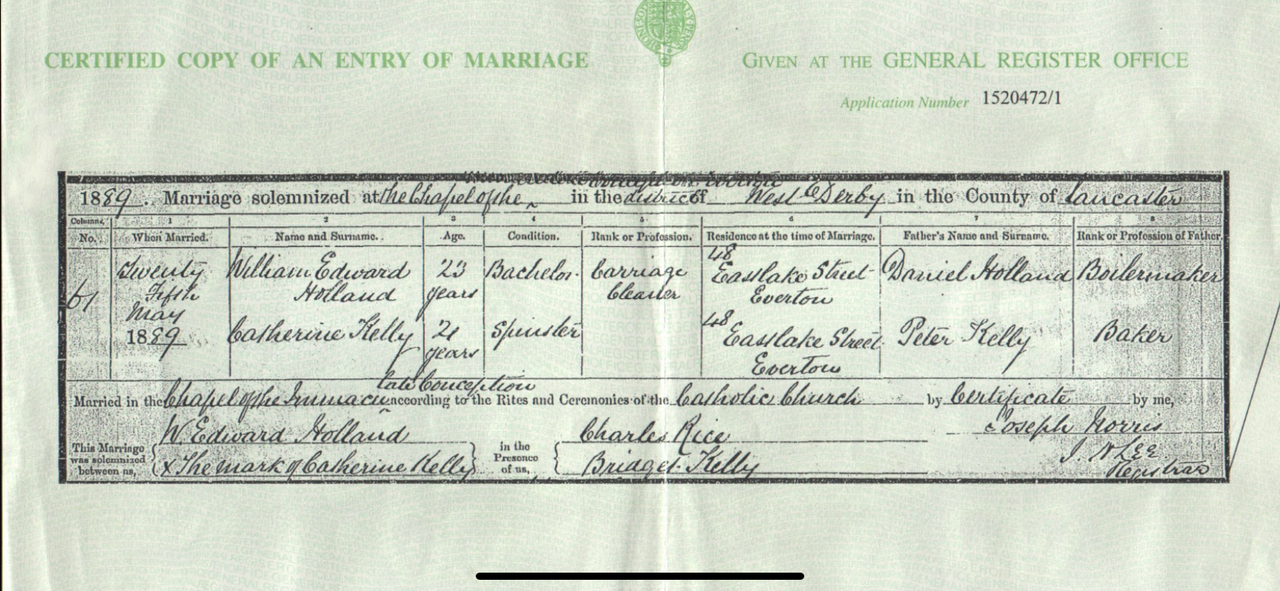 CERTIFIED COPY OF AN ENTRY OF MARRIAGE
GIVEN AT THE GENERAL REGISTER OFFICE
Application Number 1520472/1
1889. Marriage solemnized at the Chapel of the in the district of West Derby in the County of Lancaster
Columns, 1 2 3 4 5 6 7 8
No. When Married. Name and Surname. Age. Condition. Rank or Profession. Residence at the time of Marriage. Father's Name and Surname. Rank or Profession of Father.
48
Twenty William Edward 23 Bachelor Carriage Eastlake Street Daniel Holland Boilermaker
61 Fifth Holland years Cleaner Everton
May
48
1889 Catherine Kelly 21 Spinster Eastlake Street Peter Kelly Baker
years Everton
late Conception
Married in the Chapel of the Immacu according to the Rites and Ceremonies of the Catholic Church by Certificate by me,
W Edward Holland Charles Rice Joseph Norris
This Marriage was solemnized between us, in the Presence of us,
X The mark of Catherine Kelly Bridget Kelly J. N Lee
Registrar